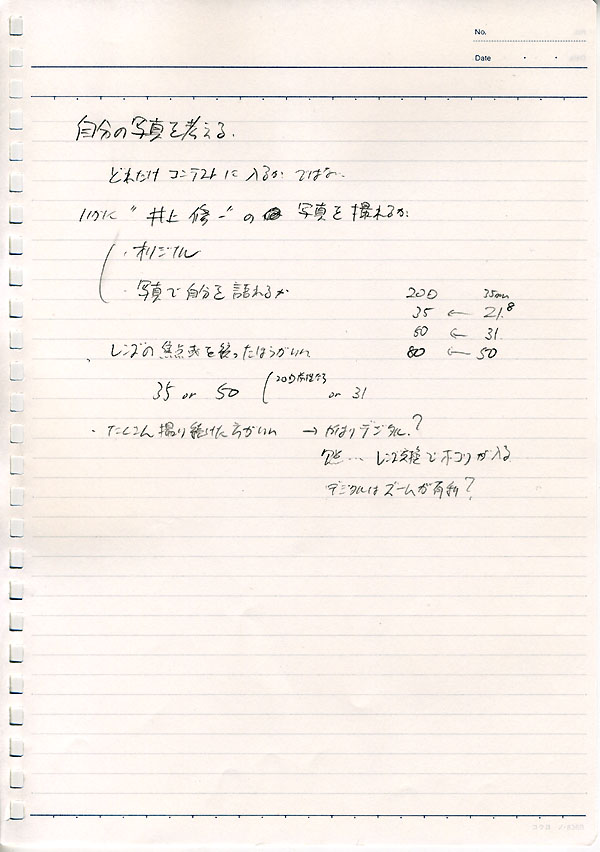 No.
Date
自分の写真を考える.
どれだけ コンテストに 入るか ではない
いかに "井上 修一"の 写真を 撮れるか
・オリジナル
・写真で自分を語れるか
20D 35mm
35 ← 21.8
50 ← 31
80 ← 50
レンズの焦点距を絞ったほうがいい
35 or 50 (20D 常住なら or 31
・たくさん撮り続けた方がいい → やはりデジタル?
欠点… レンズ交換でホコリが入る
デジタルはズームが有利?